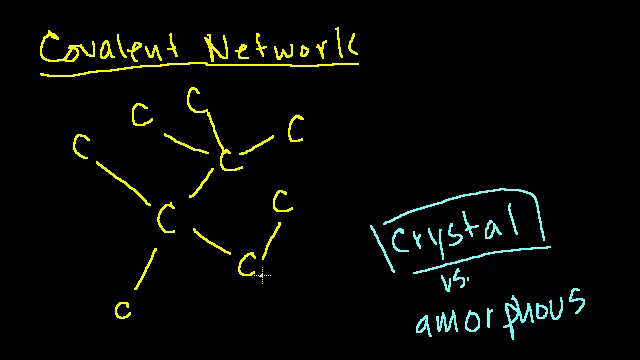 Covalent Network
C
C
C
C
C
C
C
C
C
Crystal
vs.
amorphous